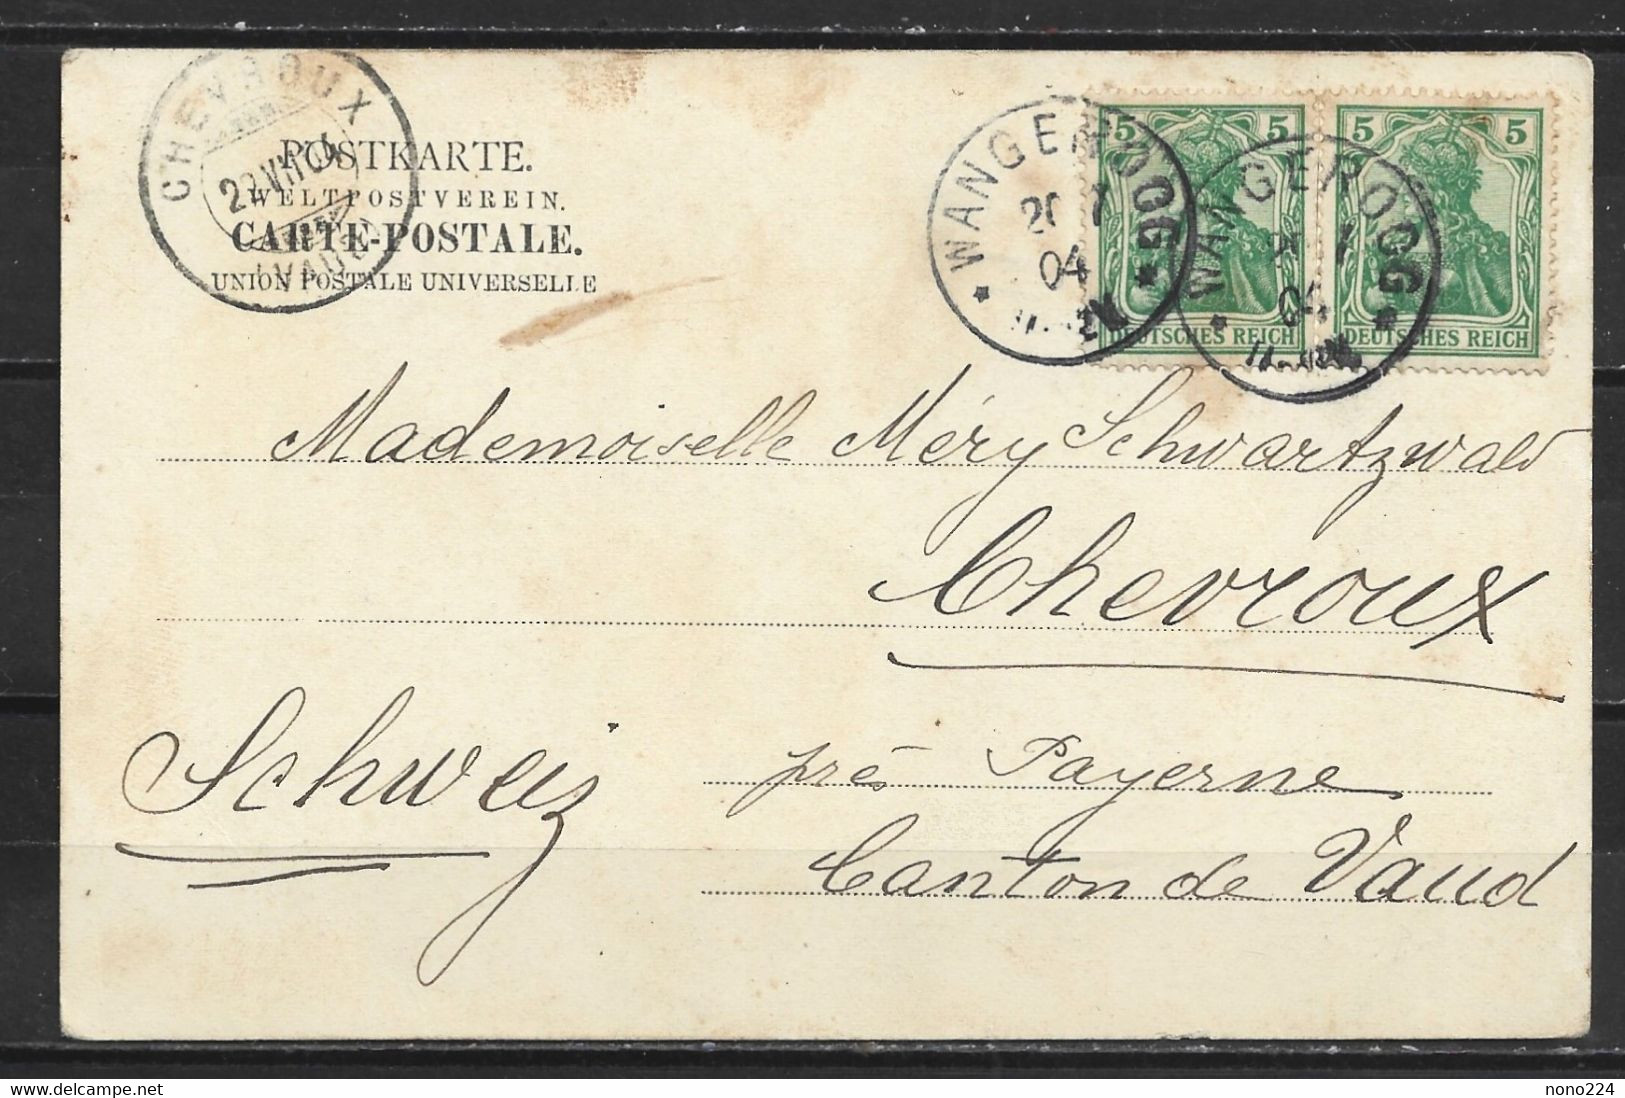 CHEVROUX
(VAUD)
POSTKARTE.
WELTPOSTVEREIN.
CARTE-POSTALE.
UNION POSTALE UNIVERSELLE
WANGEROOG
20 7
04
WANGEROOG
04
5 5
DEUTSCHES REICH
5 5
DEUTSCHES REICH
Mademoiselle Méry Schwartzwald
Chevroux
Schweiz
près Payerne
Canton de Vaud
www.delcampe.net
nono224